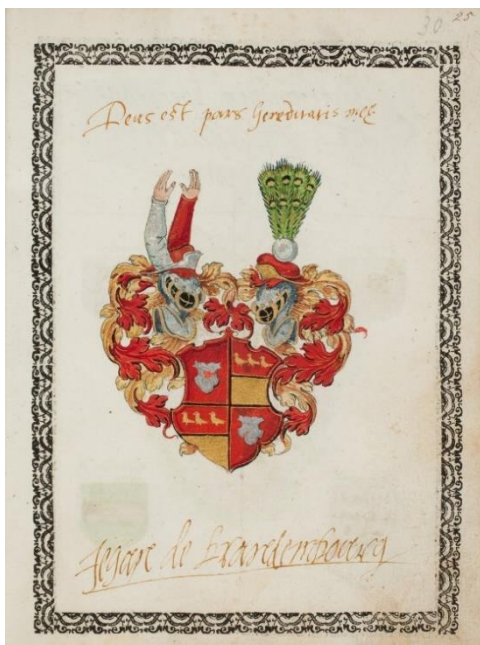 30 25
Deus est pars hereditatis meę
Jegare de brandembourg